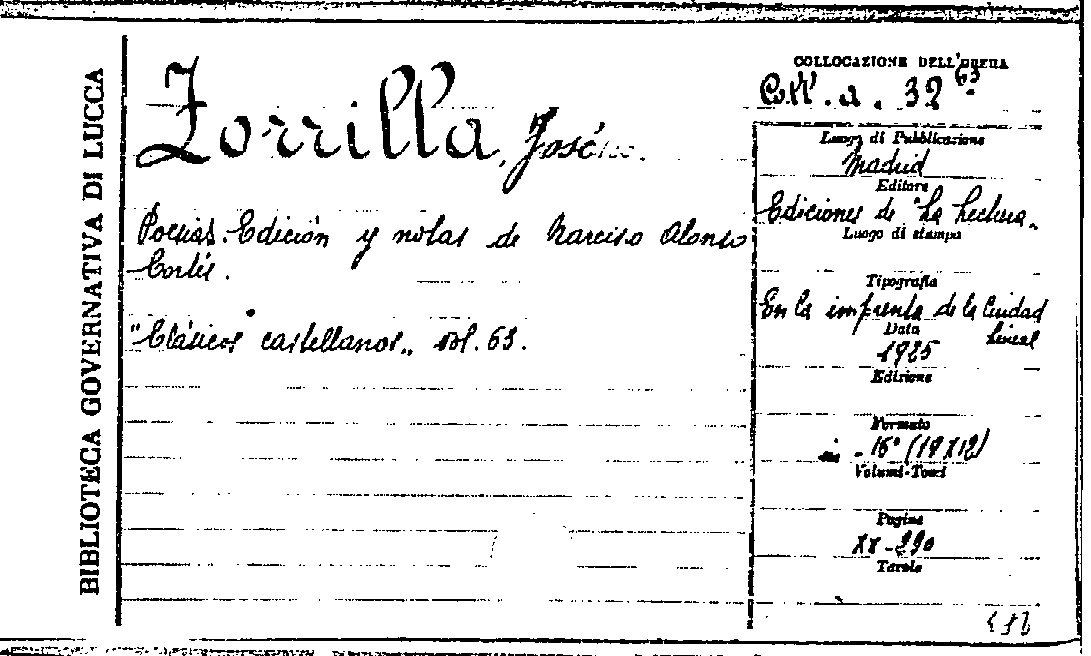 BIBLIOTECA GOVERNATIVA DI LUCCA
Zorrilla, José
Poesias. Edición y notas de Narciso Alonso
Cortés.
"Clásicos castellanos„ vol. 63.
COLLOCAZIONE DELL'OPERA
Coll. a. 32 63.
Luogo di Pubblicazione
Madrid
Editore
Ediciones de "La Lectura„
Luogo di stampa
Tipografia
En la imprenta de la Ciudad
Lineal
Data
1925
Edizione
Formato
in - 16° (19X12)
Volumi-Tomi
Pagine
XX-290
Tavole